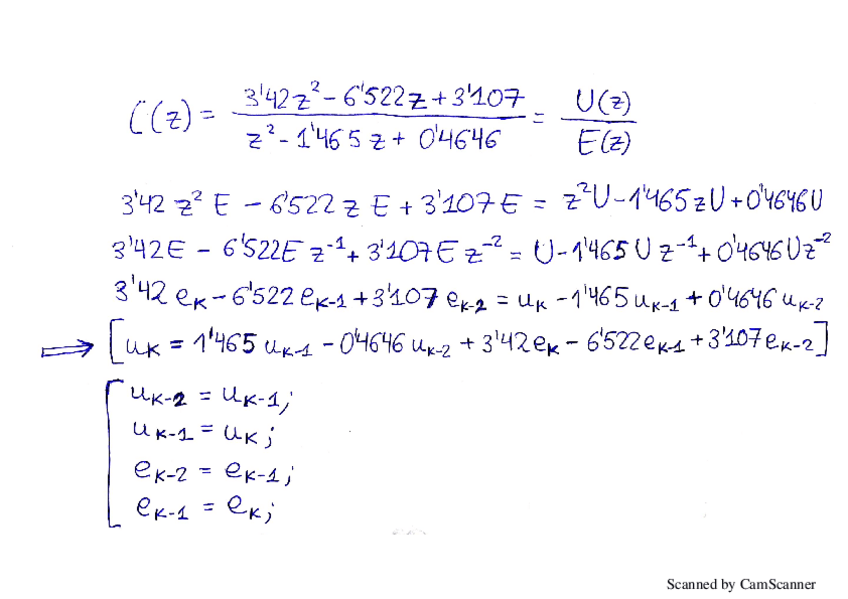 C(z) = (3'42z² - 6'522z + 3'107) / (z² - 1'465z + 0'4646) = U(z) / E(z)
3'42 z² E - 6'522 z E + 3'107 E = z²U - 1'465 zU + 0'4646U
3'42E - 6'522E z⁻¹ + 3'107 E z⁻² = U - 1'465 U z⁻¹ + 0'4646 U z⁻²
3'42 e_K - 6'522 e_K-1 + 3'107 e_K-2 = u_K - 1'465 u_K-1 + 0'4646 u_K-2
⟹ [u_K = 1'465 u_K-1 - 0'4646 u_K-2 + 3'42 e_K - 6'522 e_K-1 + 3'107 e_K-2]
u_K-2 = u_K-1;
u_K-1 = u_K;
e_K-2 = e_K-1;
e_K-1 = e_K;
Scanned by CamScanner